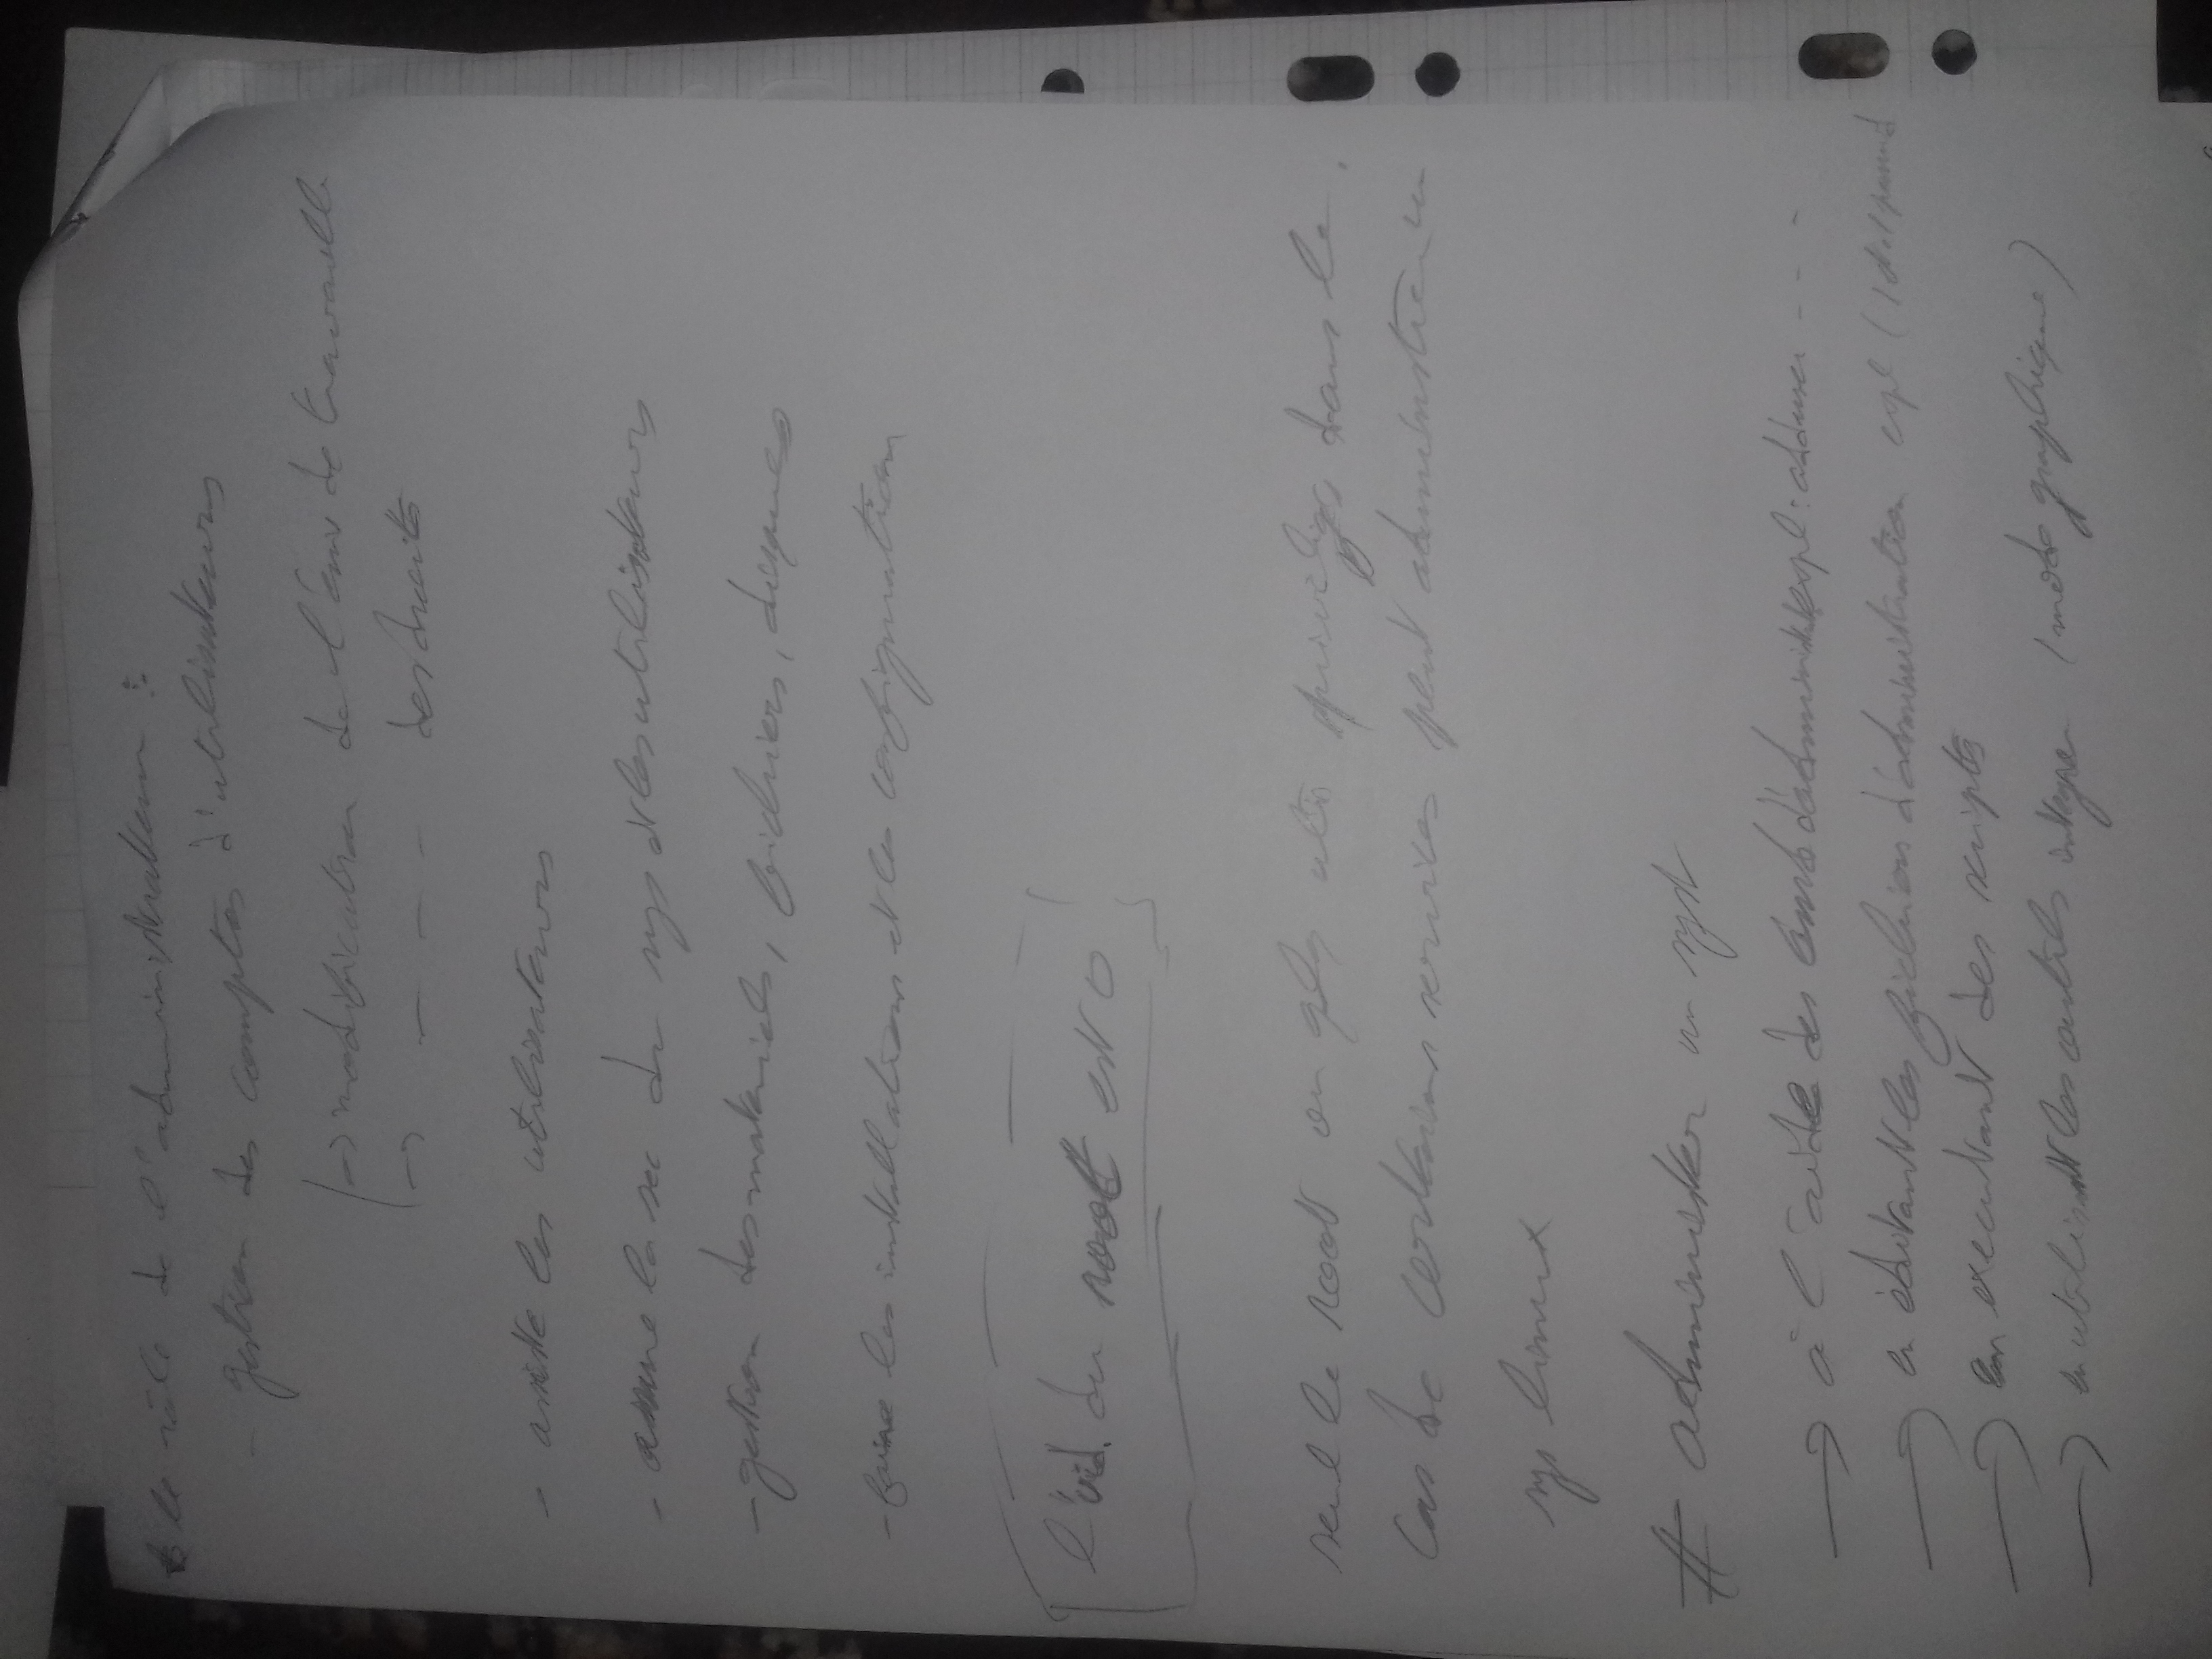 le rôle de l'administrateur :
- gestion des comptes d'utilisateurs
|-> modification de l'env de travaille
|-> - - - des droits
- assiste les utilisateurs
- assure la sec du sys et les utilisateurs
- gestion des materiels, fichiers, disques
- faire les installations et les configuration
l'uid. du root est 0
seul le root ou qlq utis privilige dans le
cas de certains services peut administrer un
sys linux
# administrer un syst
-> à l'aide des cmd d'administ expl : adduser - - -
-> en éditant les fichiers d'administration expl ( /etc/passwd
-> en executant des scripts
-> en utilisant les outils integrer (mode graphique)